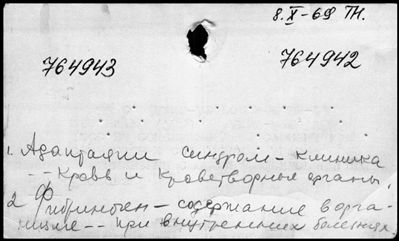 8.X-69 ТН.
764943 764942
1. Адаптации синдром - клиника
-- кровь и кроветворные органы.
2 Фибриноген - содержание в орга-
низме -- при внутренних болезнях